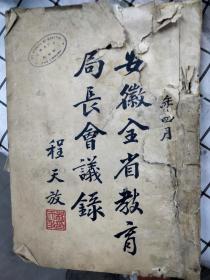 年四月
安徽全省教育
局長會議錄
程天放